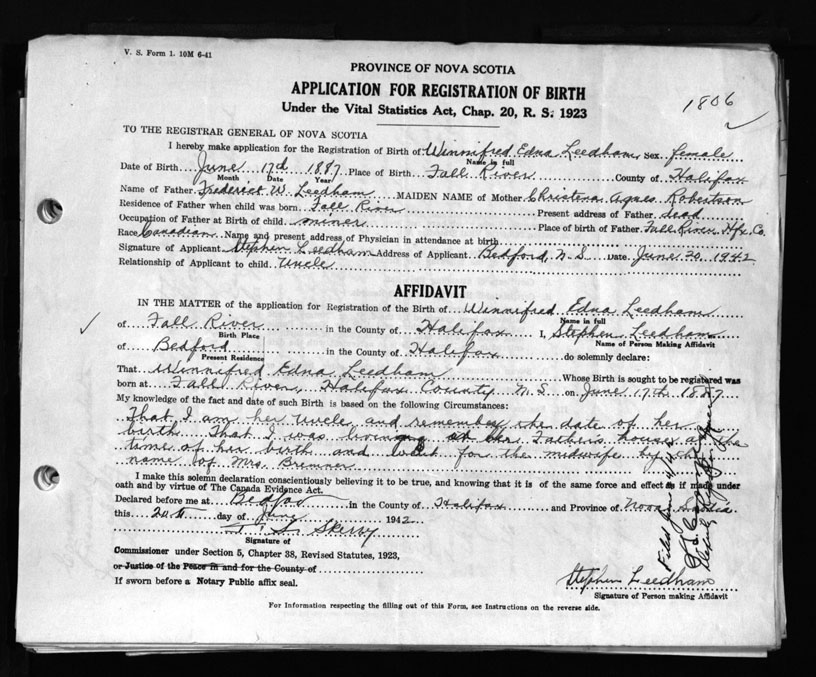 V. S. Form 1. 10M 6-41
PROVINCE OF NOVA SCOTIA
APPLICATION FOR REGISTRATION OF BIRTH
Under the Vital Statistics Act, Chap. 20, R. S. 1923
1806
TO THE REGISTRAR GENERAL OF NOVA SCOTIA
I hereby make application for the Registration of Birth of Winnifred Edna Leedham Sex female
Name in full
Date of Birth June 17th 1887 Place of Birth Fall River County of Halifax
Month Date Year
Name of Father Frederick W. Leedham MAIDEN NAME of Mother Christina Agnes Robertson
Residence of Father when child was born Fall River Present address of Father dead
Occupation of Father at Birth of child miner Place of birth of Father Fall River Hfx. Co.
Race Canadian Name and present address of Physician in attendance at birth
Signature of Applicant Stephen Leedham Address of Applicant Bedford, N. S. Date June 20, 1942
Relationship of Applicant to child Uncle
AFFIDAVIT
IN THE MATTER of the application for Registration of the Birth of Winnifred Edna Leedham
Name in full
of Fall River in the County of Halifax I, Stephen Leedham
Birth Place Name of Person Making Affidavit
of Bedford in the County of Halifax do solemnly declare:
Present Residence
That Winnifred Edna Leedham Whose Birth is sought to be registered was
born at Fall River, Halifax County N.S. on June 17th 1887
My knowledge of the fact and date of such Birth is based on the following Circumstances:
That I am her Uncle and remember the date of her
birth. That I was living at her Father's house at the
time of her birth and for the midwife by the
name of Mrs. Bremner
I make this solemn declaration conscientiously believing it to be true, and knowing that it is of the same force and effect as if made under
oath and by virtue of The Canada Evidence Act.
Declared before me at Bedford in the County of Halifax and Province of Nova Scotia
this 20th day of June 1942
Skerry
Signature of
Commissioner under Section 5, Chapter 38, Revised Statutes, 1923,
or Justice of the Peace in and for the County of
If sworn before a Notary Public affix seal.
Stephen Leedham
Signature of Person making Affidavit
For Information respecting the filling out of this Form, see Instructions on the reverse side.